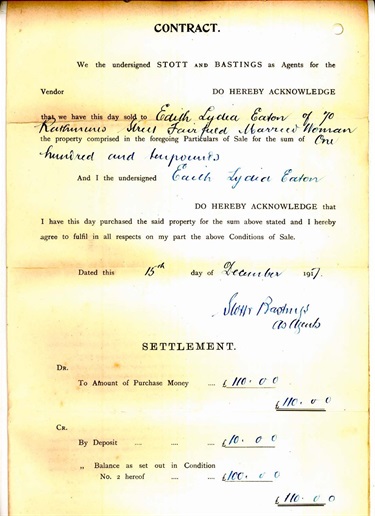 CONTRACT.
We the undersigned STOTT AND BASTINGS as Agents for the
Vendor DO HEREBY ACKNOWLEDGE
that we have this day sold to Edith Lydia Eaton of 70
Rathmines Street Fairfield Married Woman
the property comprised in the foregoing Particulars of Sale for the sum of One
hundred and ten pounds
And I the undersigned Edith Lydia Eaton
DO HEREBY ACKNOWLEDGE that
I have this day purchased the said property for the sum above stated and I hereby
agree to fulfil in all respects on my part the above Conditions of Sale.
Dated this 15th day of December 1917.
Stott & Bastings
As Agents
SETTLEMENT.
DR.
To Amount of Purchase Money .... £110.0 0
£110.0 0
CR.
By Deposit .... .... .... £10.0 0
„ Balance as set out in Condition
No. 2 hereof .... .... £100.0 0
£110.0 0